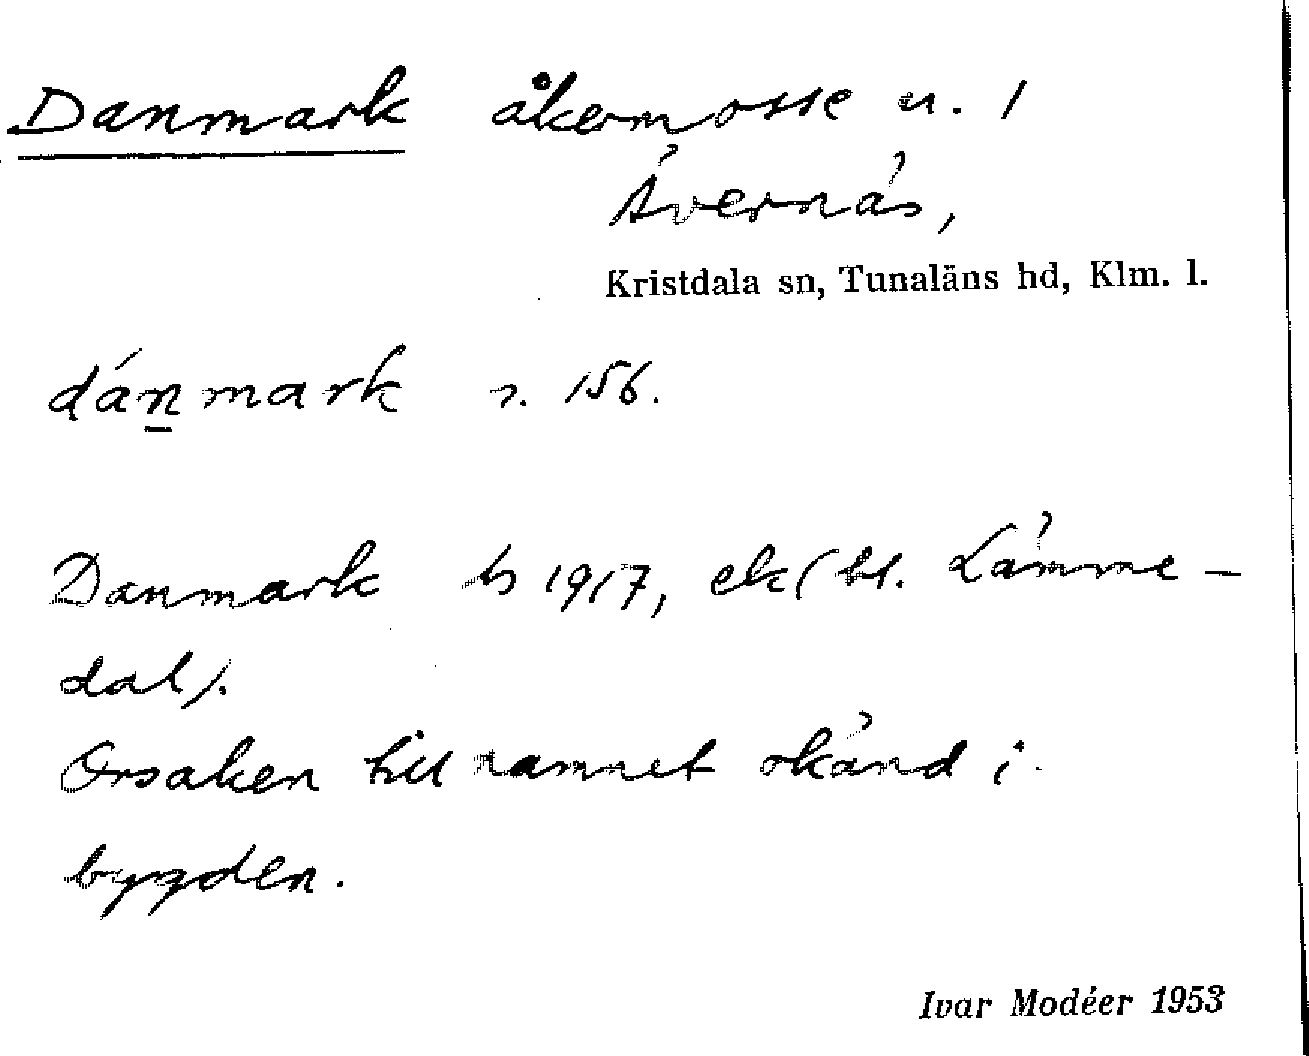 Danmark åkermosse u. 1
Ävernäs,
Kristdala sn, Tunaläns hd, Klm. l.
dánmark s. 156.
Danmark 1917, ek (bl. Lämme-
dal).
Orsaken till namnet okänd i
bygden.
Ivar Modéer 1953